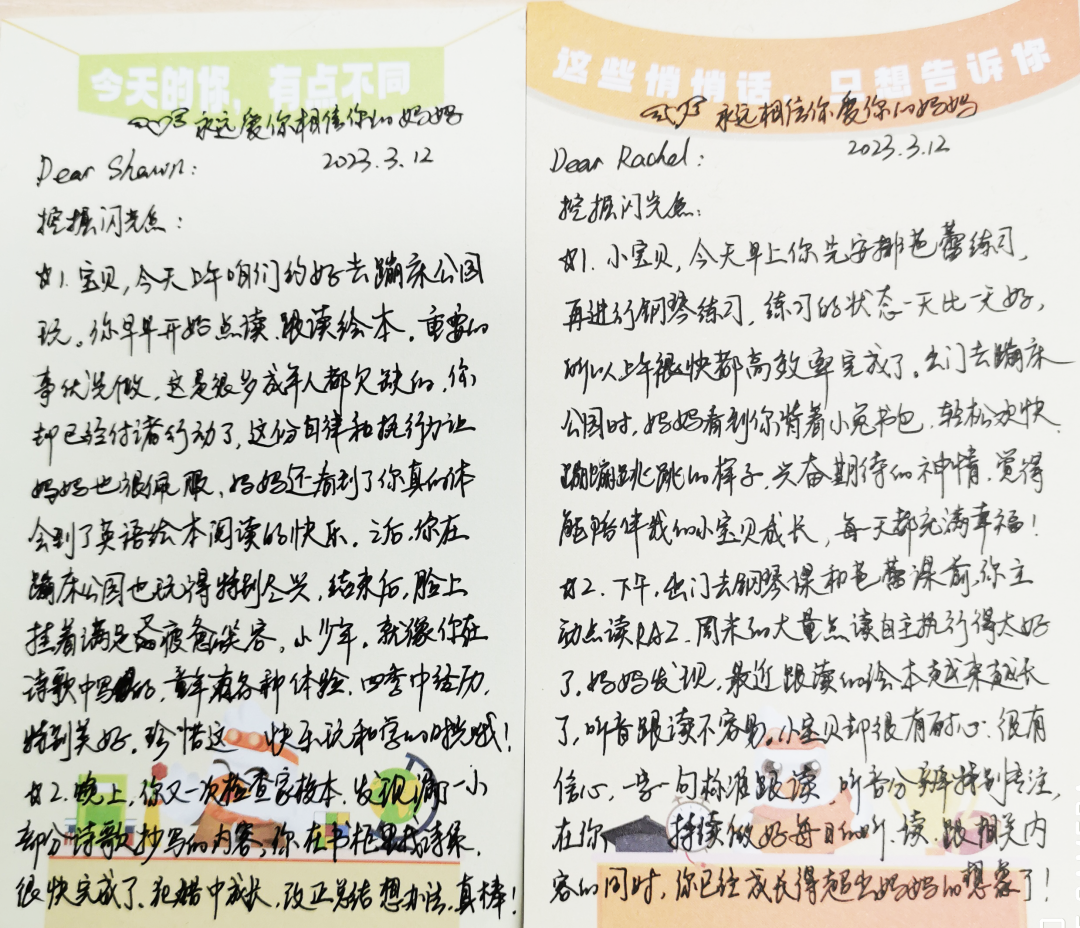 今天的你，有点不同
永远爱你相信你的妈妈
Dear Shawn:
2023.3.12
挖掘闪光点：
1. 宝贝，今天上午咱们约好去蹦床公园
玩。你早早开始点读、跟读绘本，重要的
事优先做，这是很多成年人都欠缺的，你
却已经付诸行动了，这份自律和执行力让
妈妈也很佩服，妈妈还看到了你真的体
会到了英语绘本阅读的快乐。之后，你在
蹦床公园也玩得特别尽兴，结束后，脸上
挂着满足又疲惫笑容。小少年，就像你在
诗歌中写的，童年有各种体验，四季中经历，
特别美好。珍惜这 快乐玩和学的时光哦！
2. 晚上，你又一次检查家校本，发现漏了一小
部分诗歌抄写的内容，你在书柜里找诗集，
很快完成了。犯错中成长，改正总结想办法，真棒！
这些悄悄话，只想告诉你
永远相信你爱你的妈妈
Dear Rachel:
2023.3.12
挖掘闪光点：
1. 小宝贝，今天早上你先安排芭蕾练习，
再进行钢琴练习，练习的状态一天比一天好，
所以上午很快都高效率完成了。出门去蹦床
公园时，妈妈看到你背着小兔书包，轻松欢快
蹦蹦跳跳的样子，兴奋期待的神情，觉得
能陪伴我的小宝贝成长，每天都充满幸福！
2. 下午，出门去钢琴课和芭蕾课前，你主
动点读RAZ，周末的大量点读自主执行得太好
了，妈妈发现，最近跟读的绘本越来越长
了，听音跟读不容易。小宝贝却很有耐心、很有
信心，一字一句标准跟读，听音分辨特别专注，
在你 持续做好每日的听、读、跟相关内
容的同时，你已经成长得超出妈妈的想象了！